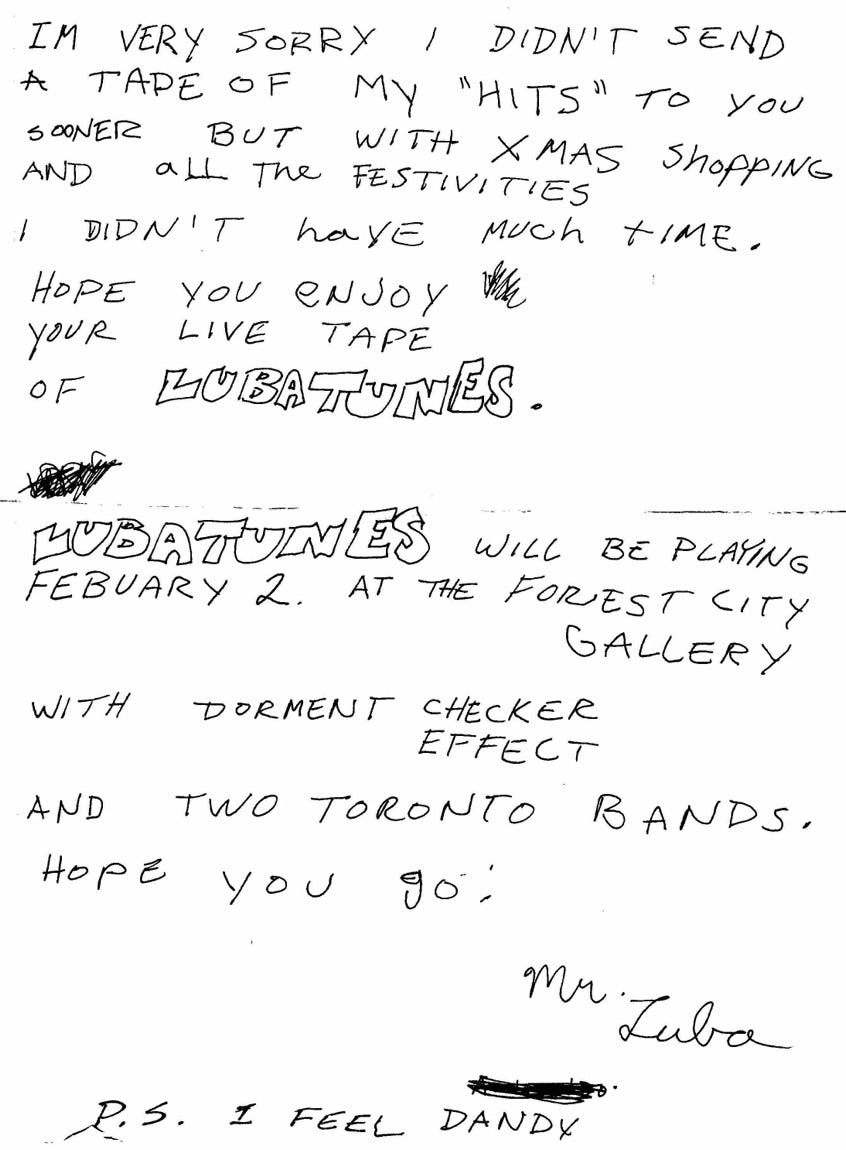 IM VERY SORRY I DIDN'T SEND
A TAPE OF MY "HITS" TO YOU
SOONER BUT WITH XMAS ShoppING
AND all The FESTIVITIES
I DIDN'T haVE MUch tIME.
HOPE YOU eNJOY
YOUR LIVE TAPE
OF LUBATUNES.
LUBATUNES WILL BE PLAYING
FEBUARY 2. AT THE FOREST CITY
GALLERY
WITH DORMENT CHECKER
EFFECT
AND TWO TORONTO BANDS.
HOPE YOU go.
Mr. Luba
P.S. I FEEL DANDY